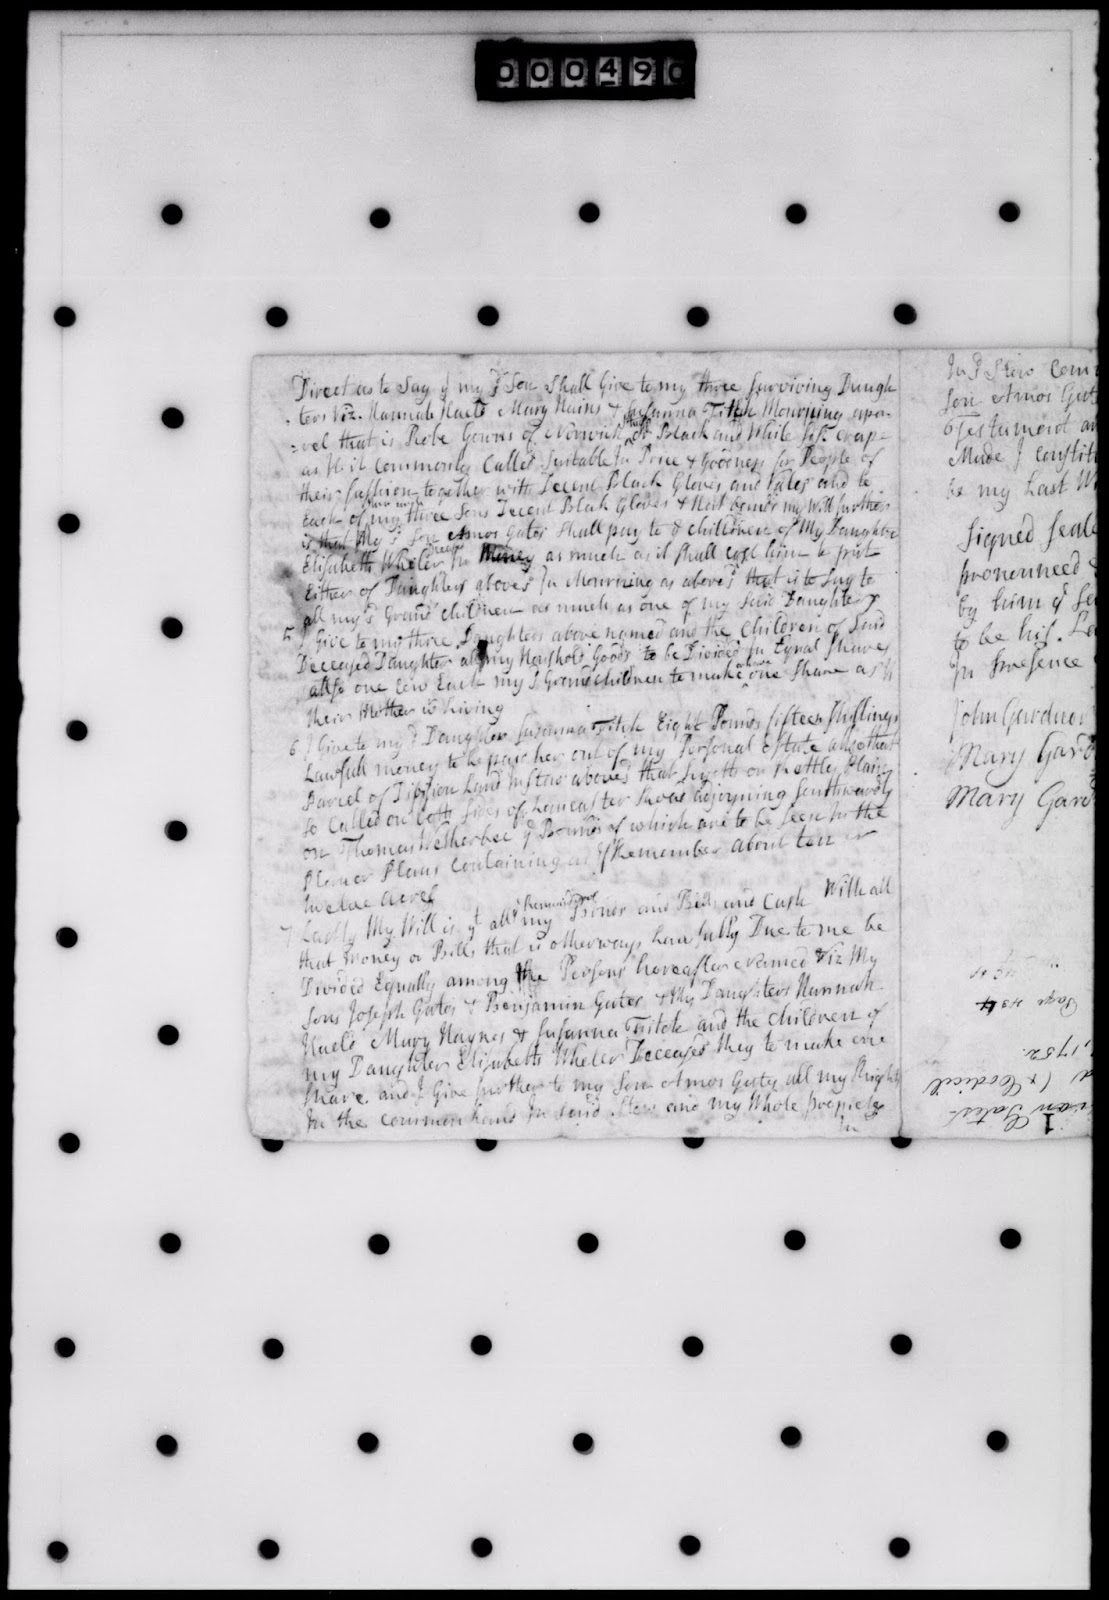 000490
Direct as to Say yt my sd Son Shall Give to my three Surviving Daugh
ters Viz. Hannah Haels Mary Hains & Susanna Fitch Mourning apa
rel that is Robe Gowns of Norwich Black and White
as it is Commonly Called Suitable In Price & Goodness for People of
their fashion together with Decent Black Gloves and Vales and to
Each of my three Sons Decent Black Gloves & Hat my Will further
is that My sd Son Amos Gates Shall pay to ye Children of My Daughter
Elisabeth Wheler In Money as much as it shall cost him to put
Either of Daughters abovesd In Mourning as abovesd that is to Say to
all my sd Grand children as much as one of my Said Daughters
5 I Give to my three Daughters above named and the Children of Said
Deceased Daughter all my Houshold Goods to be Divided In Equal Shares
allso one Cow Each my sd Grandchildren to make above one Share as if
their Mother is living
6 I Give to my sd Daughter Susanna Fitch Eight Pounds fifteen Shillings
Lawfull money to be paid her out of my Personal Estate allso that
Parcel of Division Land In Stow abovesd that lyeth on Nettle Plain
so Called on both sides of Lancaster Road adjoyning Southwardly
on Thomas Wetherbee ye Bounds of which are to be Seen In the
Plans Containing as I Remember about ten or
twelve acres
7 Lastly My Will is yt all ye Remainder of my Bonds and Bills and Cash With all
that money or Bills that is otherways Lawfully Due to me be
Divided Equally among the Persons hereafter Named Viz My
Sons Joseph Gates & Benjamin Gates & My Daughters Hannah
Haels Mary Haynes & Susanna Fitch and the Children of
my Daughter Elisabeth Wheler Deceased they to make one
Share and I Give further to my Son Amos Gates all my Right
In the common lands In said Stow and my Whole propriety
In
In sd Stow Com
Son Amos Gat
Testament an
Made I constit
be my Last W
Signed Seale
pronounced
by him ye
to be his La
In Presence
John Gardner
Mary Gard
Mary Gard
Page 434
1752.
& Codicil
Gates
1